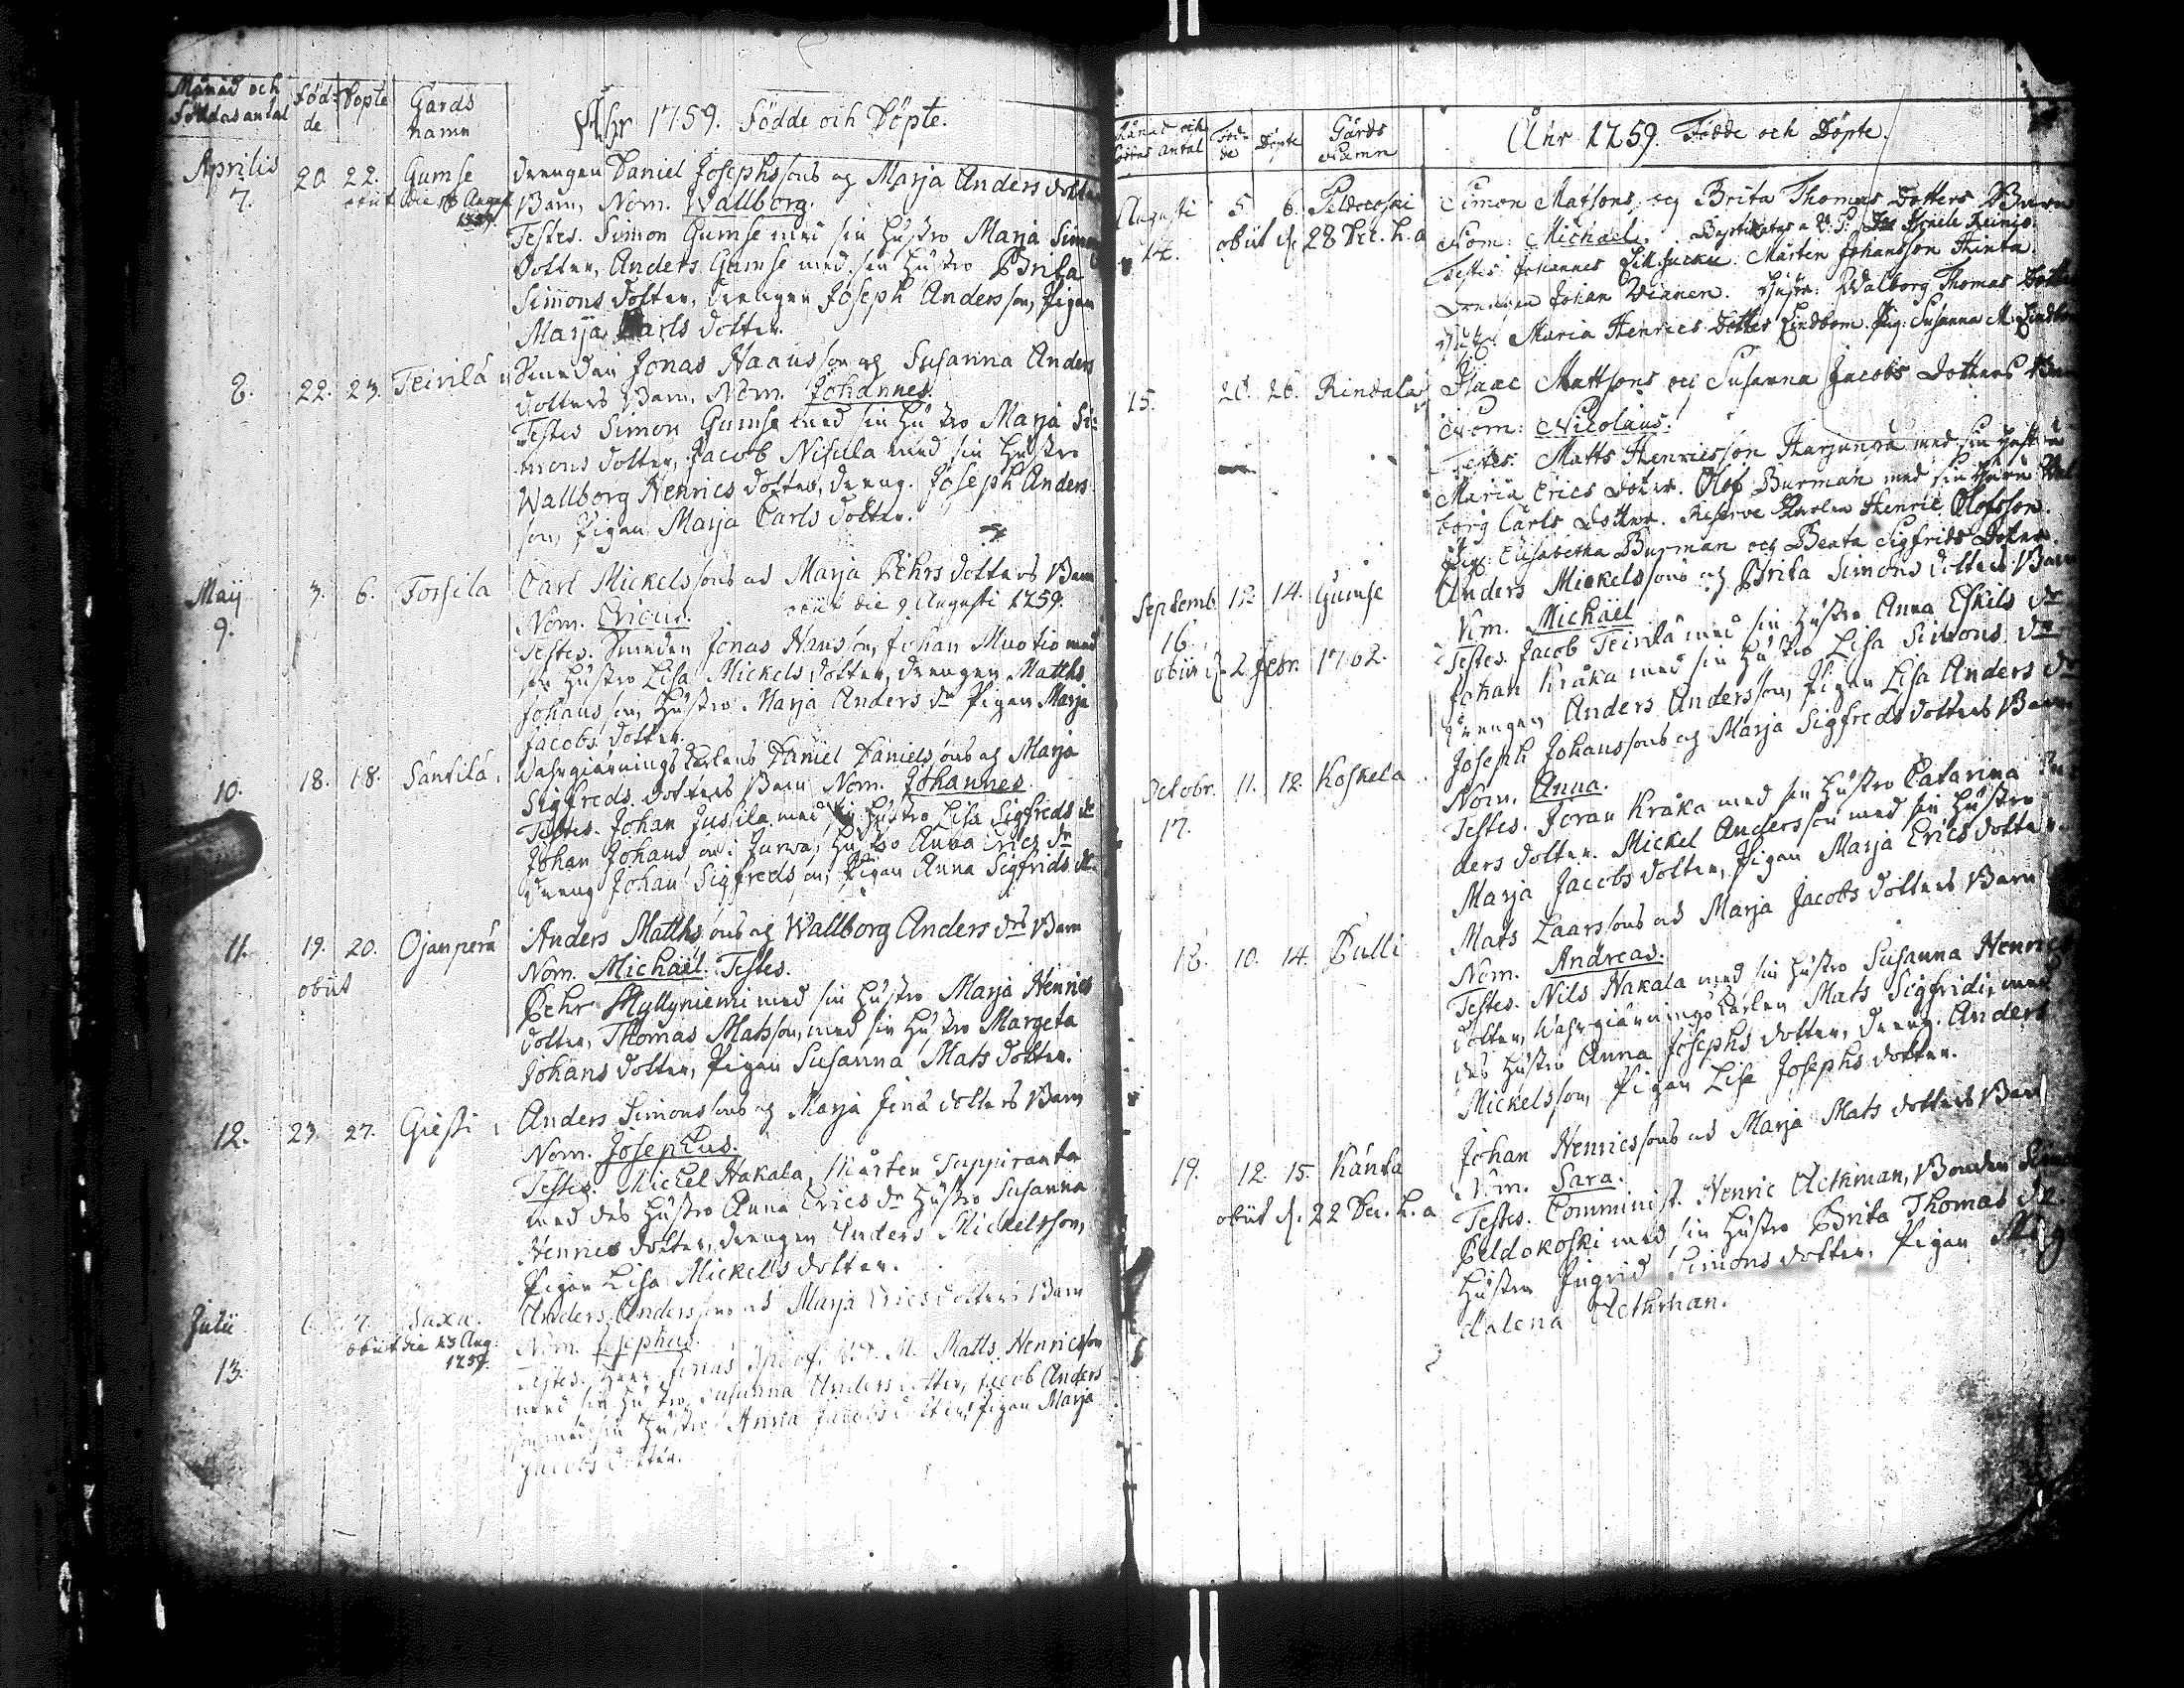 Månad och Föddas antal
Föd: de
Döpte
Gårds namn
Åhr 1759. Födde och Döpte.
Aprilis 7. 20. 22. Gumse
obiit die Augusti 1759.
drengen Daniel Josephssons og Marja Anders dotters
Barn, Nom. Wallborg.
Testes. Simon Gumse med sin Hustro Marja Simons
dotter, Anders Gumse med sin Hustro Brita
Simons dotter, drengen Joseph Andersson, Pigan
Marja Carls dotter.
8. 22. 23. Teirilä
Smeden Jonas Haansson og Susanna Anders
dotters Barn, Nom. Johannes.
Testes Simon Gumse med sin Hustro Marja Si:
mons dotter, Jacob Nisula med sin Hustro
Wallborg Henrics dotter, dreng. Joseph Anders
son, Pigan Marja Carls dotter.
Maij 9. 3. 6. Forsila
Carl Mickelssons as Marja Pehrs dotters Barn
Nom. Ericus. obiit die 9 Augusti 1759.
Testes. Smeden Jonas Hansson, Johan Muotio med
sin Hustro Lisa Mickels dotter, drengen Matths
Johansson, Hustro Marja Anders dr Pigan Marja
Jacobs dotter.
10. 18. 18. Santila
Wahrgiärnings Karlens Daniel Danielssons og Marja
Sigfreds dotters Barn Nom. Johannes.
Testes. Johan Jussila med sin Hustro Lisa Sigfreds dr
Johan Johansson i Jurva, Hustro Anna Erics dr
Dreng Johan Sigfredsson, Pigan Anna Sigfrids dr.
11. 19. 20. Ojanperä
obiit
Anders Matthssons og Wallborg Anders drs Barn
Nom. Michaël. Testes.
Pehr Myllyniemi med sin Hustro Marja Henrics
dotter, Thomas Matsson, med sin Hustro Margeta
Johans dotter, Pigan Susanna Mats dotter.
12. 23. 27. Giesti
Anders Simonssons og Marja Jina dotters Barn
Nom. Josephus.
Testes. Mickel Hakala, Mårten Sappiranta
med des Hustro Anna Erics dr Hustro Susanna
Henrics dotter, drengen Anders Mickelsson,
Pigan Lisa Mickels dotter.
Julii 13. 6. 7. Saxu.
obiit die 23 Aug. 1759.
Anders Anderssons as Marja Erics dotters Barn
Nom. Josephus.
Testes. Herr Jonas V. D. M. Matts Henricsson
med sin Hustro Susanna Anders dotter, Jacob Anders
son med sin Hustro Anna Jacobs dotter, Pigan Marja
Jacobs dotter.
Månad och Föddas antal
Föd: de
Döpte
Gårds Namn
Åhr 1759. Födde och Döpte.
Augusti 14. 5. 6. Peldokoski
obiit d. 28 Dec. h. a
Simon Matsons og Brita Thomas Dotters Barn
Nom: Michael.
Testes: Johannes Mårten Johansson Hinta.
Drengen Johan Wianen. Hustr: Walborg Thomas Dotter
Hust: Maria Henrics Dotter Lindbom. Pig: Susanna M. Lindbom
15. 20. 26. Rindala
Isaac Mattsons och Susanna Jacobs Dotters Barn
Nom: Nicolaus.
Testes: Matts Henricsson Harjunpä med sin Hustru
Maria Erics Dotter. Olof Burman med sin Hustru Wal
borg Carls Dotter. Reserve Karlen Henric Olofsson.
Pig: Elisabetha Burman och Beata Sigfrids Dotter.
Septemb. 16. 12. 14. Gumse
obiit d. 2 Febr. 1762.
Anders Mickelssons og Brita Simons dotters Barn
Nom. Michaël
Testes. Jacob Teirilä med sin Hustro Anna Eskils dr
Johan Kråka med sin Hustro Lisa Simons dr
drengen Anders Andersson, Pigan Lisa Anders dr
Octobr. 17. 11. 12. Koskela
Joseph Johanssons og Marja Sigfreds dotters Barn
Nom. Anna.
Testes. Jöran Kråka med sin Hustro Catarina An
ders dotter. Mickel Andersson med sin Hustro
Marja Jacobs dotter, Pigan Marja Erics dotter.
18. 10. 14. Pulli
Mats Laarssons as Marja Jacobs dotters Barn
Nom. Andreas.
Testes. Nils Hakala med sin Hustro Susanna Henrics
dotter, Wahrgiärnings Karlen Mats Sigfridi, med
des Hustro Anna Josephs dotter, dreng. Anders
Mickelsson, Pigan Lisa Josephs dotter.
19. 12. 15. Känta
obiit d. 22 Dec. h. a
Johan Henricssons as Marja Mats dotters Barn
Nom. Sara.
Testes. Comminist. Henric Aethman, Bonden Simon
Peldokoski med sin Hustro Brita Thomas dr.
Hustro Ingrid Simons dotter, Pigan Mag
dalena Aethman.